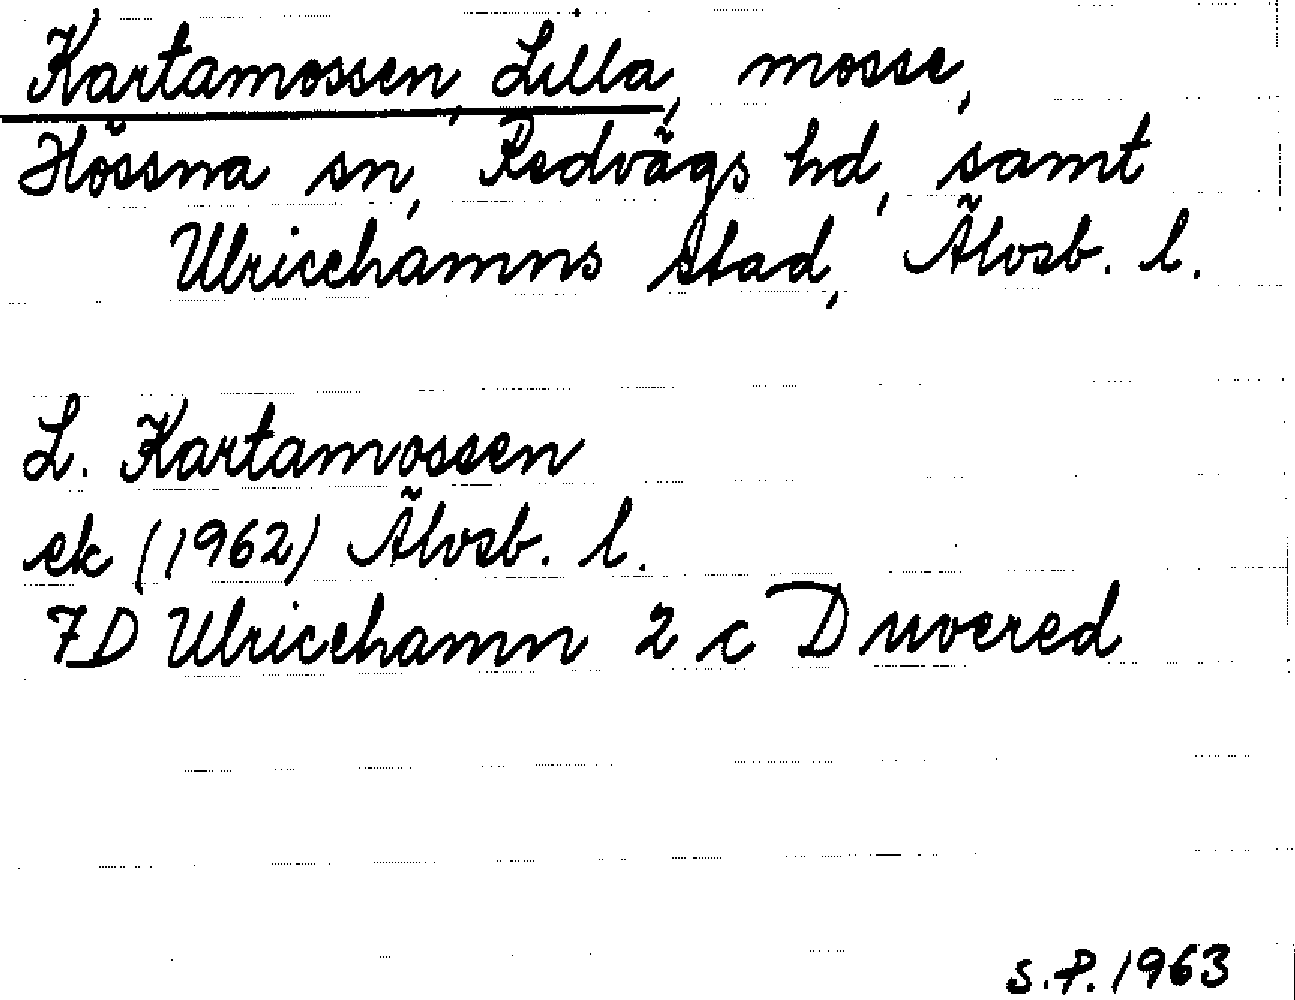 Kartamossen, Lilla, mosse,
Hössna sn, Redvägs hd, samt
Ulricehamns stad, Älvsb. l.
L. Kartamossen
ek (1962) Älvsb. l.
7D Ulricehamn 2 c Duvered
S.P. 1963